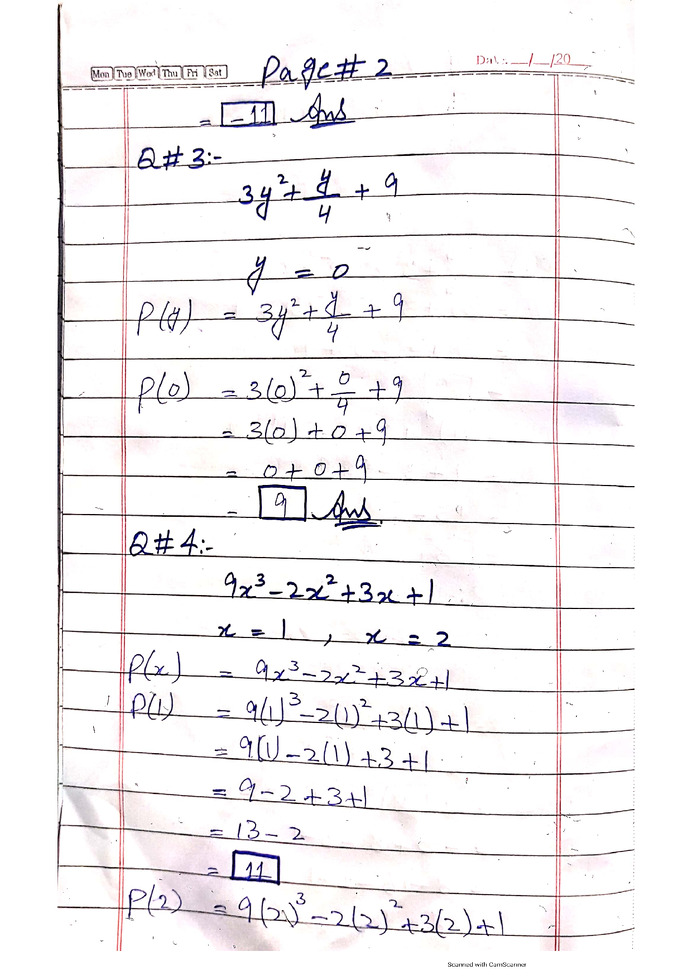 Mon Tue Wed Thu Fri Sat
Page# 2
Date: __/__/20__
= -11 Ans
Q#3:-
3y² + y/4 + 9
y = 0
P(y) = 3y² + y/4 + 9
P(0) = 3(0)² + 0/4 + 9
= 3(0) + 0 + 9
= 0 + 0 + 9
= 9 Ans.
Q#4:-
9x³ - 2x² + 3x + 1
x = 1 , x = 2
P(x) = 9x³ - 2x² + 3x + 1
P(1) = 9(1)³ - 2(1)² + 3(1) + 1
= 9(1) - 2(1) + 3 + 1
= 9 - 2 + 3 + 1
= 13 - 2
= 11
P(2) = 9(2)³ - 2(2)² + 3(2) + 1
Scanned with CamScanner